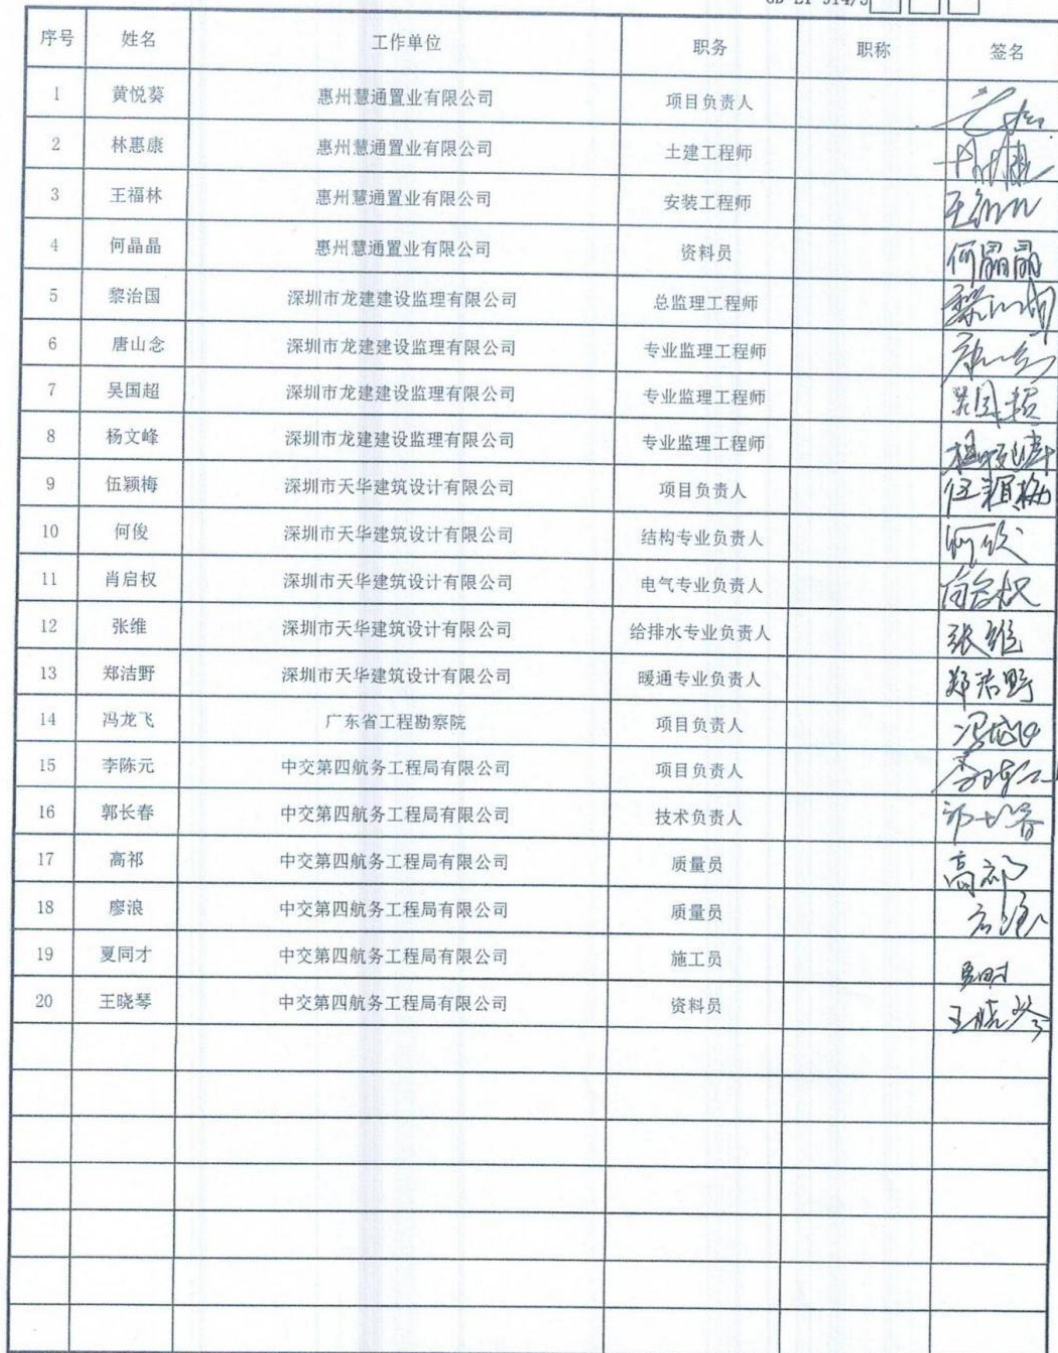 序号 姓名 工作单位 职务 职称 签名
1 黄悦葵 惠州慧通置业有限公司 项目负责人
2 林惠康 惠州慧通置业有限公司 土建工程师
3 王福林 惠州慧通置业有限公司 安装工程师
4 何晶晶 惠州慧通置业有限公司 资料员 何晶晶
5 黎治国 深圳市龙建建设监理有限公司 总监理工程师
6 唐山念 深圳市龙建建设监理有限公司 专业监理工程师
7 吴国超 深圳市龙建建设监理有限公司 专业监理工程师 吴国超
8 杨文峰 深圳市龙建建设监理有限公司 专业监理工程师
9 伍颖梅 深圳市天华建筑设计有限公司 项目负责人 伍颖梅
10 何俊 深圳市天华建筑设计有限公司 结构专业负责人 何俊
11 肖启权 深圳市天华建筑设计有限公司 电气专业负责人 肖启权
12 张维 深圳市天华建筑设计有限公司 给排水专业负责人 张维
13 郑洁野 深圳市天华建筑设计有限公司 暖通专业负责人 郑洁野
14 冯龙飞 广东省工程勘察院 项目负责人 冯龙飞
15 李陈元 中交第四航务工程局有限公司 项目负责人
16 郭长春 中交第四航务工程局有限公司 技术负责人
17 高祁 中交第四航务工程局有限公司 质量员 高祁
18 廖浪 中交第四航务工程局有限公司 质量员
19 夏同才 中交第四航务工程局有限公司 施工员
20 王晓琴 中交第四航务工程局有限公司 资料员 王晓琴